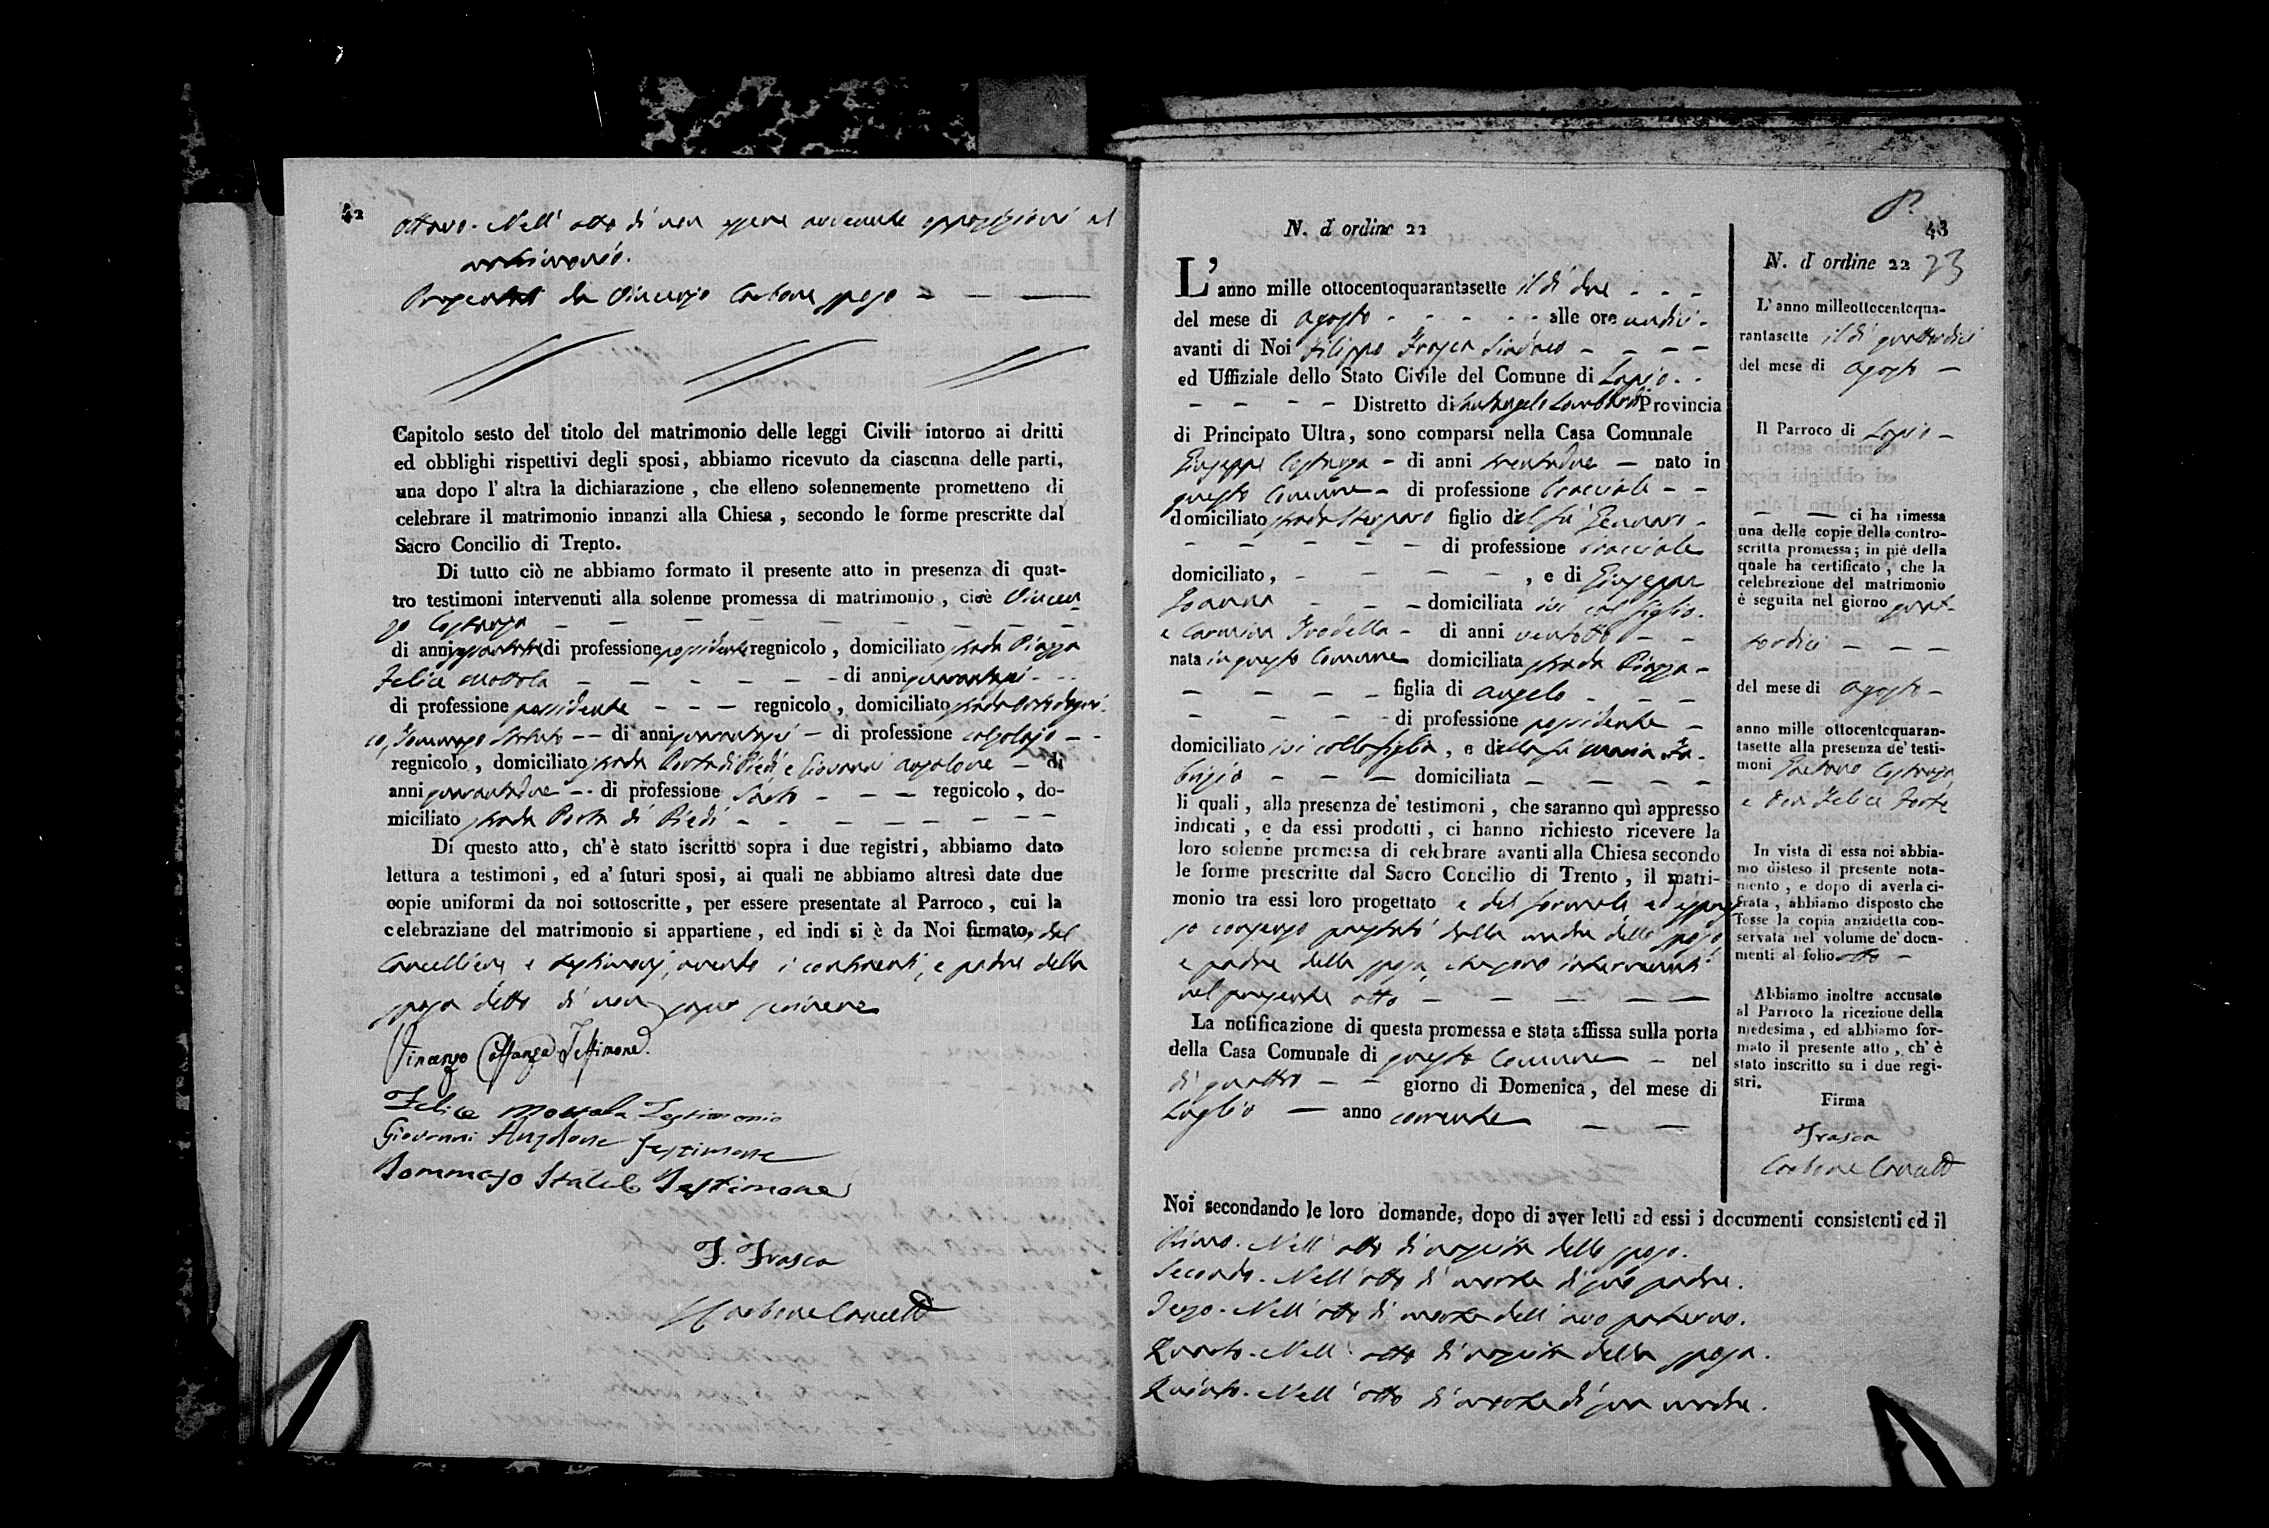 42
ottavo. Nell'atto di non essere avvenute opposizioni al
matrimonio.
Presentati da Vincenzo Carbone sposo
Capitolo sesto del titolo del matrimonio delle leggi Civili intorno ai dritti
ed obblighi rispettivi degli sposi, abbiamo ricevuto da ciascuna delle parti,
una dopo l'altra la dichiarazione, che elleno solennemente prometteno di
celebrare il matrimonio innanzi alla Chiesa, secondo le forme prescritte dal
Sacro Concilio di Trento.
Di tutto ciò ne abbiamo formato il presente atto in presenza di quat-
tro testimoni intervenuti alla solenne promessa di matrimonio, cioè Vincen
zo Costanza
di anni di professione possidente regnicolo, domiciliato strada Piazza
Felice Mottola di anni quarantasei
di professione possidente regnicolo, domiciliato strada
co, Tommaso di anni quarantasei di professione calzolajo
regnicolo, domiciliato strada Porta di Piedi e Giovanni Anzalone di
anni quarantadue di professione Sarto regnicolo, do-
miciliato strada Porta di Piedi
Di questo atto, ch'è stato iscritto sopra i due registri, abbiamo dato
lettura a testimoni, ed a' futuri sposi, ai quali ne abbiamo altresì date due
copie uniformi da noi sottoscritte, per essere presentate al Parroco, cui la
celebraziane del matrimonio si appartiene, ed indi si è da Noi firmato, dal
Cancelliere e testimonj, avendo i contraenti, e padre della
sposa detto di non saper scrivere
Vincenzo Costanza Testimone
Felice Mottola Testimonio
Giovanni Anzalone Testimone
Tommaso Testimone
F. Frasca
Carbone Cancell
N. d ordine 22
L'anno mille ottocentoquarantasette il di due
del mese di agosto alle ore undici
avanti di Noi Filippo Frasca Sindaco
ed Uffiziale dello Stato Civile del Comune di Lapio
Distretto di Santangelo Lombardi Provincia
di Principato Ultra, sono comparsi nella Casa Comunale
Giuseppe Costanza di anni trentadue nato in
questo Comune di professione bracciale
domiciliato strada figlio del fu Gennaro
di professione bracciale
domiciliato, , e di Giuseppa
domiciliata ivi col figlio.
e Carmina Trodella di anni ventotto
nata in questo Comune domiciliata strada Piazza
figlia di Angelo
di professione possidente
domiciliato ivi colla figlia, e della fu Maria Fa-
brizio domiciliata
li quali, alla presenza de' testimoni, che saranno quì appresso
indicati, e da essi prodotti, ci hanno richiesto ricevere la
loro solenne promessa di celebrare avanti alla Chiesa secondo
le forme prescritte dal Sacro Concilio di Trento, il matri-
monio tra essi loro progettato e del formale ed espres
so consenso prestato dalla madre dello sposo,
e padre della sposa, intervenuti
nel presente atto
La notificazione di questa promessa e stata affissa sulla porta
della Casa Comunale di questo Comune nel
di quattro giorno di Domenica, del mese di
Luglio anno corrente
43
N. d ordine 22 23
L'anno milleottocentoqua-
rantasette il di quattordici
del mese di agosto
Il Parroco di Lapio
ci ha rimessa
una delle copie della contro-
scritta promessa; in piè della
quale ha certificato, che la
celebrezione del matrimonio
è seguita nel giorno quat-
tordici
del mese di agosto
anno mille ottocentoquaran-
tasette alla presenza de' testi-
moni Gaetano Costanza
e Don Felice Forte
In vista di essa noi abbia-
mo disteso il presente nota-
mento, e dopo di averla ci-
frata, abbiamo disposto che
fosse la copia anzidetta con-
servata nel volume de' docu-
menti al folio otto
Abbiamo inoltre accusato
al Parroco la ricezione della
medesima, ed abbiamo for-
mato il presente atto, ch'è
stato inscritto su i due regi-
stri.
Firma
Frasca
Carbone Cancell
Noi secondando le loro domande, dopo di aver letti ad essi i documenti consistenti ed il
Primo. Nell'atto di nascita dello sposo.
Secondo. Nell'atto di morte di suo padre.
Terzo. Nell'atto di morte dell'avo paterno.
Quarto. Nell'atto di nascita della sposa.
Quinto. Nell'atto di morte di sua madre.